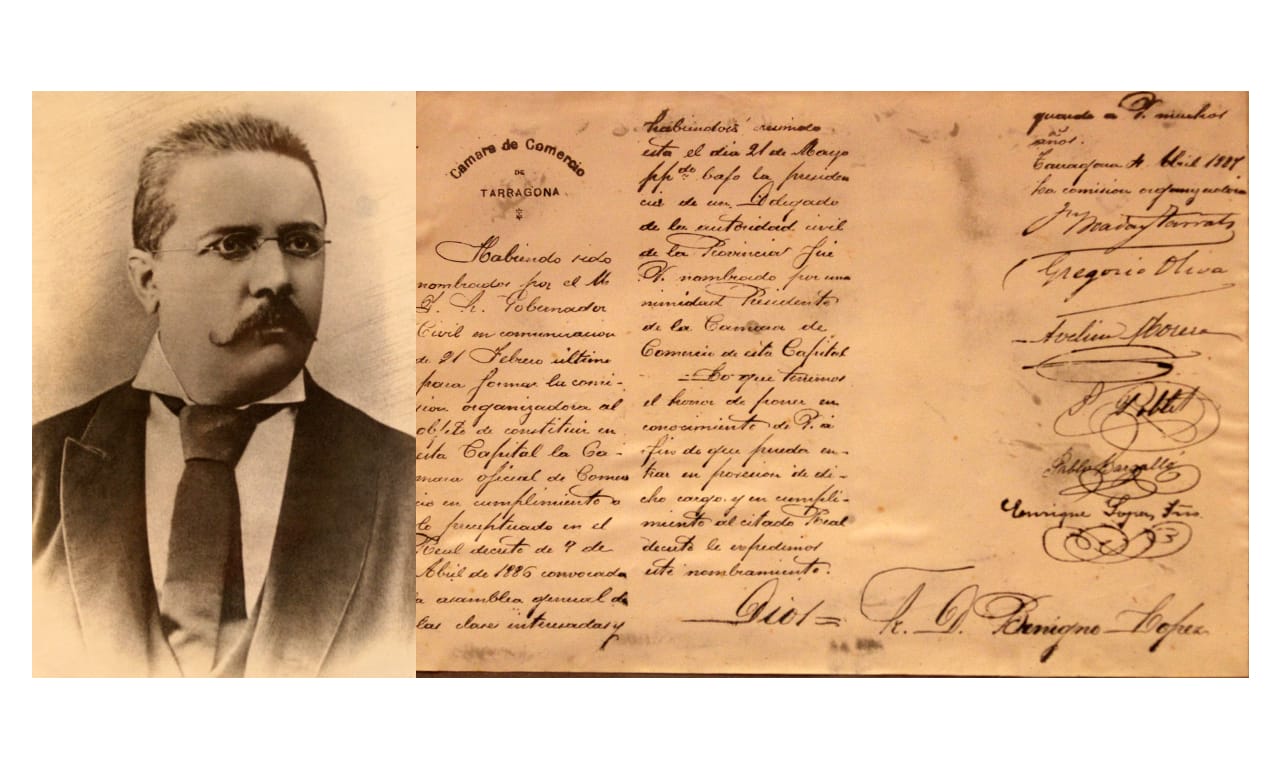 Cámara de Comercio
DE
TARRAGONA
Habiendo sido
nombrados por el M
Y. Sr. Gobernador
Civil en comunicacion
de 21 Febrero último
para formar la comi-
sion organizadora al
objeto de constituir en
esta Capital la Ca-
mara oficial de Comer
cio en cumplimiento a
lo preceptuado en el
Real decreto de 9 de
Abril de 1886 convocada
a asamblea general de
las clases interesadas y
habiendose reunido
esta el dia 21 de Mayo
pp.do bajo la presiden
cia de un Delegado
de la autoridad civil
de la Provincia fué
V. nombrado por una
nimidad Presidente
de la Camara de
Comercio de esta Capital
=Lo que tenemos
el honor de poner en
conocimiento de V. a
fin de que pueda en-
trar en posesion de di-
cho cargo y en cumpli-
miento al citado Real
decreto le expedimos
este nombramiento.
Dios=
guarde a V. muchos
años.
Tarragona Abril 1887
La comision organizadora
Gregorio Oliva
Avelino Morera
Poblet
Pablo Bargalló
Enrique Lopez
Sr. D. Benigno Lopez